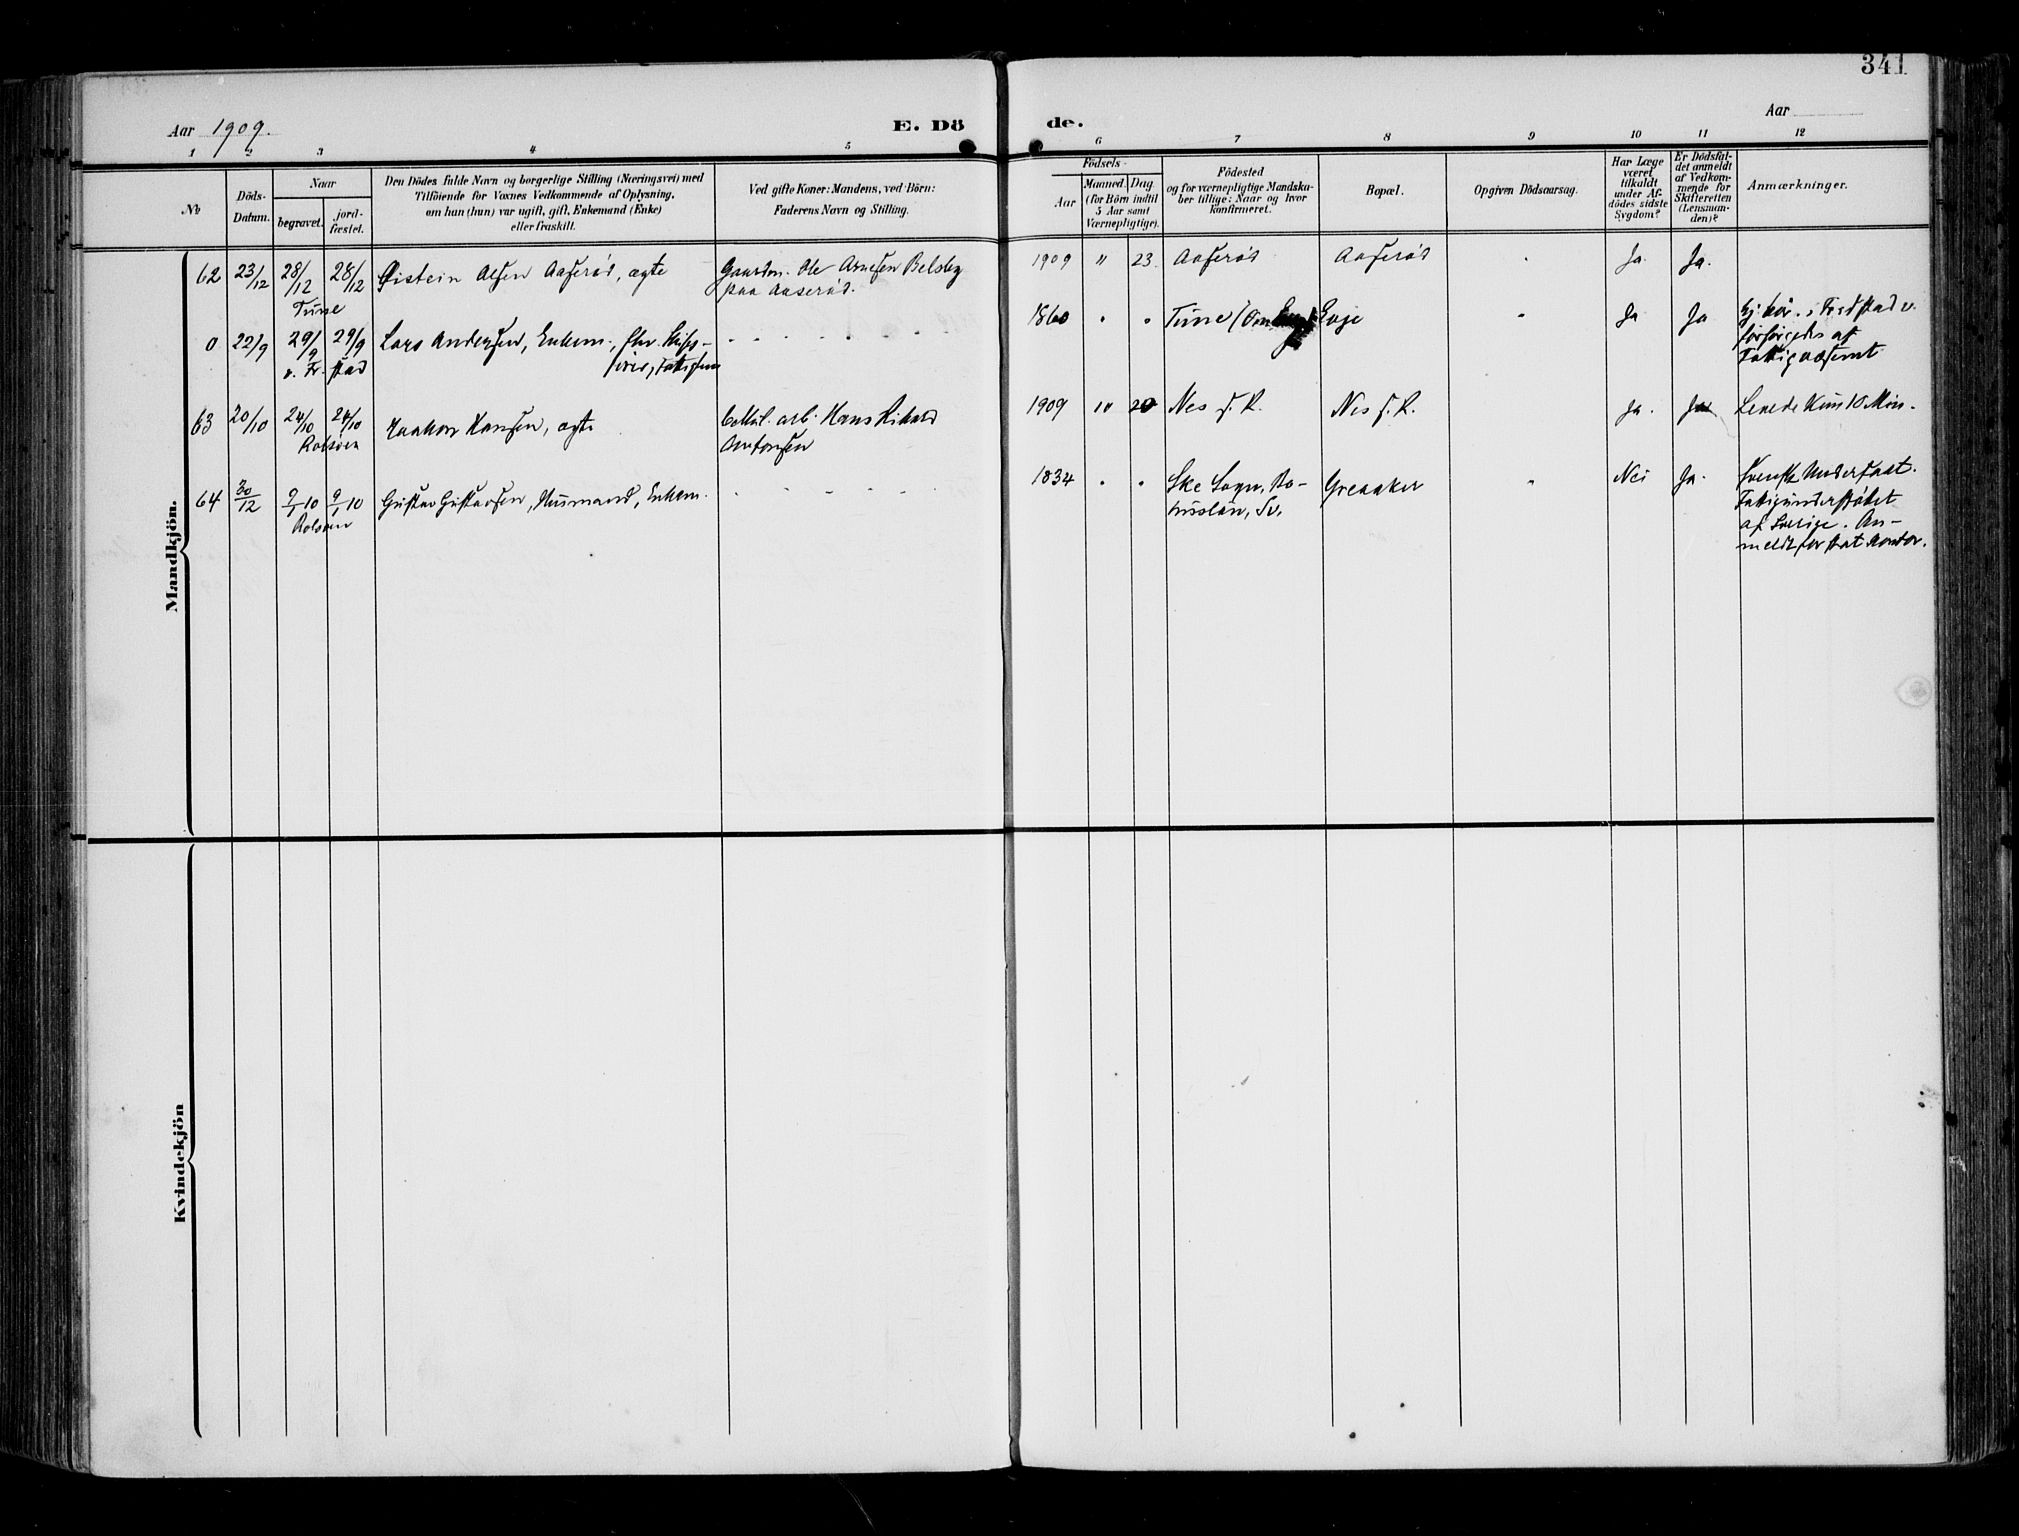 341
Aar 1909.
E. Dö
de.
Aar
1 2 3 4 5
6 7 8 9 10 11 12
No
Döds-
Datum.
Naar
begravet.
jord-
fæstet.
Den Dödes fulde Navn og borgerlige Stilling (Næringsvei) med
Tilföiende for Voxnes Vedkommende af Oplysning,
om han (hun) var ugift, gift, Enkemand (Enke)
eller fraskilt.
Ved gifte Koner: Mandens, ved Börn:
Faderens Navn og Stilling.
Födsels-
Aar
Maaned. Dag
(for Börn indtil
5 Aar samt
Værnepligtige).
Födested
og for værnepligtige Mandska-
ber tillige: Naar og hvor
konfirmeret.
Bopæl.
Opgiven Dödsaarsag.
Har Læge
været
tilkaldt
under Af-
dödes sidste
Sygdom?
Er Dödsfal-
det anmeldt
af Vedkom-
mende for
Skifteretten
(Lensman-
den)?
Anmærkninger.
Mandkjön.
62 23/12 28/12 28/12 Øistein Olsen Aaserød, ægte
Tune
Gaardm. Ole Arnesen Belsby
paa Aaserød.
1909 " 23. Aaserød Aaserød Ja. Ja.
0 22/9 29/9 29/9 Lars Andersen, Enkem.,
v. Fr. stad
1860 Tune Evje Ja Ja
i Fredstad v.
forsørgedes af
Fattigvæsenet
63 20/10 24/10 24/10 Haakon Hansen, ægte
Rolsøen
arb. Hans Rikard
Antonsen
1909 10 20 Nes f. R. Nes f. R. Ja. Ja Levede kun 10 Min.
64 30/12 9/1 10 9/1 10 Gustav Gustavsen, Husmand, Enkem.
Rolsøen
1834 Ske Sogn, Bo-
huslän, Sv.
Greaaker Nei Ja.
Svensk Undersaat.
Fattigunderstøttet
af Sverige. An-
meldt for
Kvindekjön